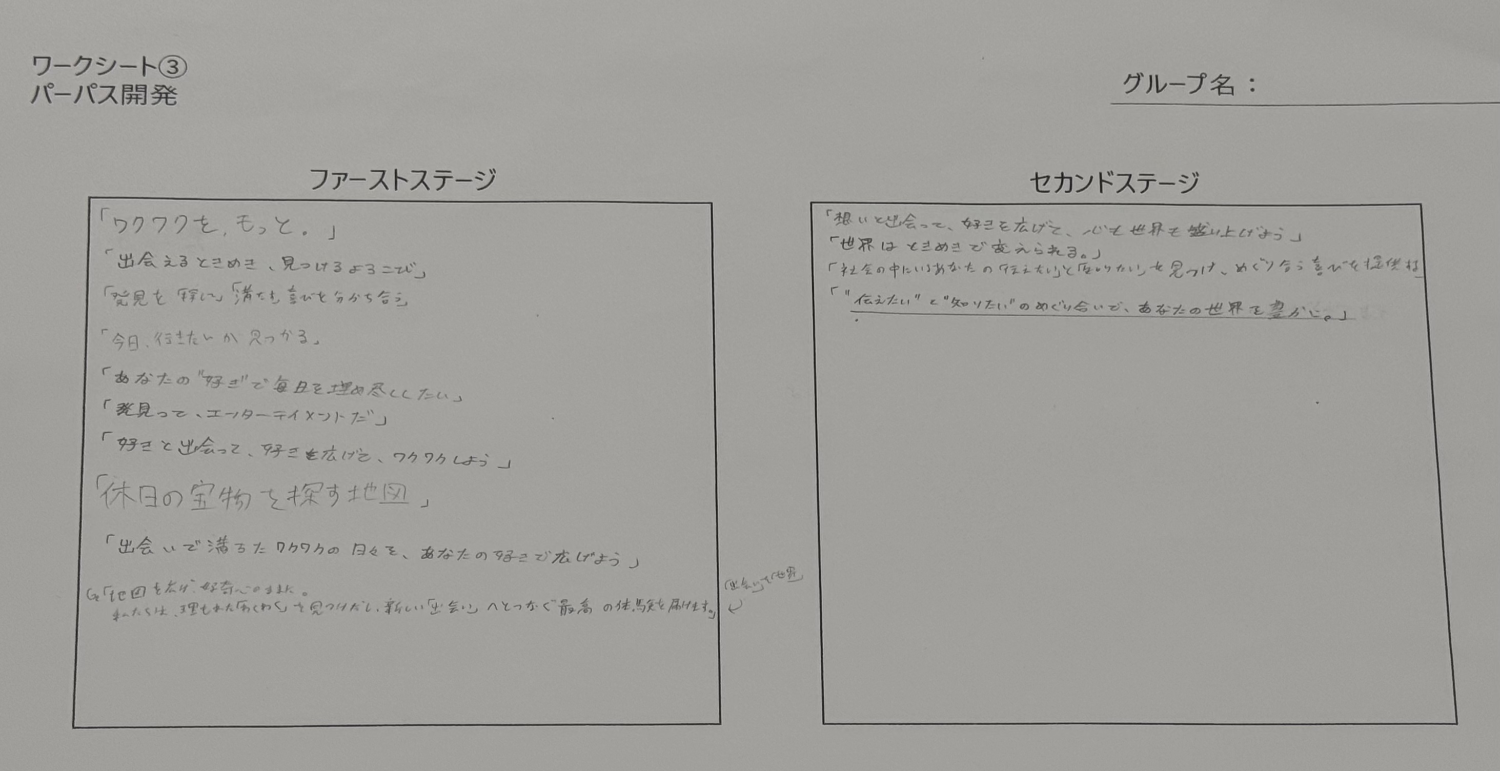 ワークシート③
パーパス開発
グループ名：
ファーストステージ
「ワクワクを、もっと。」
「出会えるときめき、見つけるよろこび」
「発見を 「満ちる 喜びを分かち合う
「今日、行きたいが見つかる」
「あなたの"好き"で毎日を埋め尽くしたい」
「発見って、エンターテイメントだ」
「好きと出会って、好きを広げて、ワクワクしよう」
「休日の宝物を探す地図」
「出会いで満ちたワクワクの日々を、あなたの好きで広げよう」
「地図を広げ、好奇心のままに。
私たちは、埋もれた「わくわく」を見つけだし、新しい「出会い」へとつなぐ最高の体験を届けます。」
「出会い」や「世界
セカンドステージ
「想いと出会って、好きを広げて、心も世界も盛り上げよう」
「世界はときめきで変えられる。」
「社会の中にいるあなたの「伝えたい」と「知りたい」を見つけ、めぐり合う喜びを提供
「"伝えたい"と"知りたい"のめぐり合いで、あなたの世界を豊かに。」